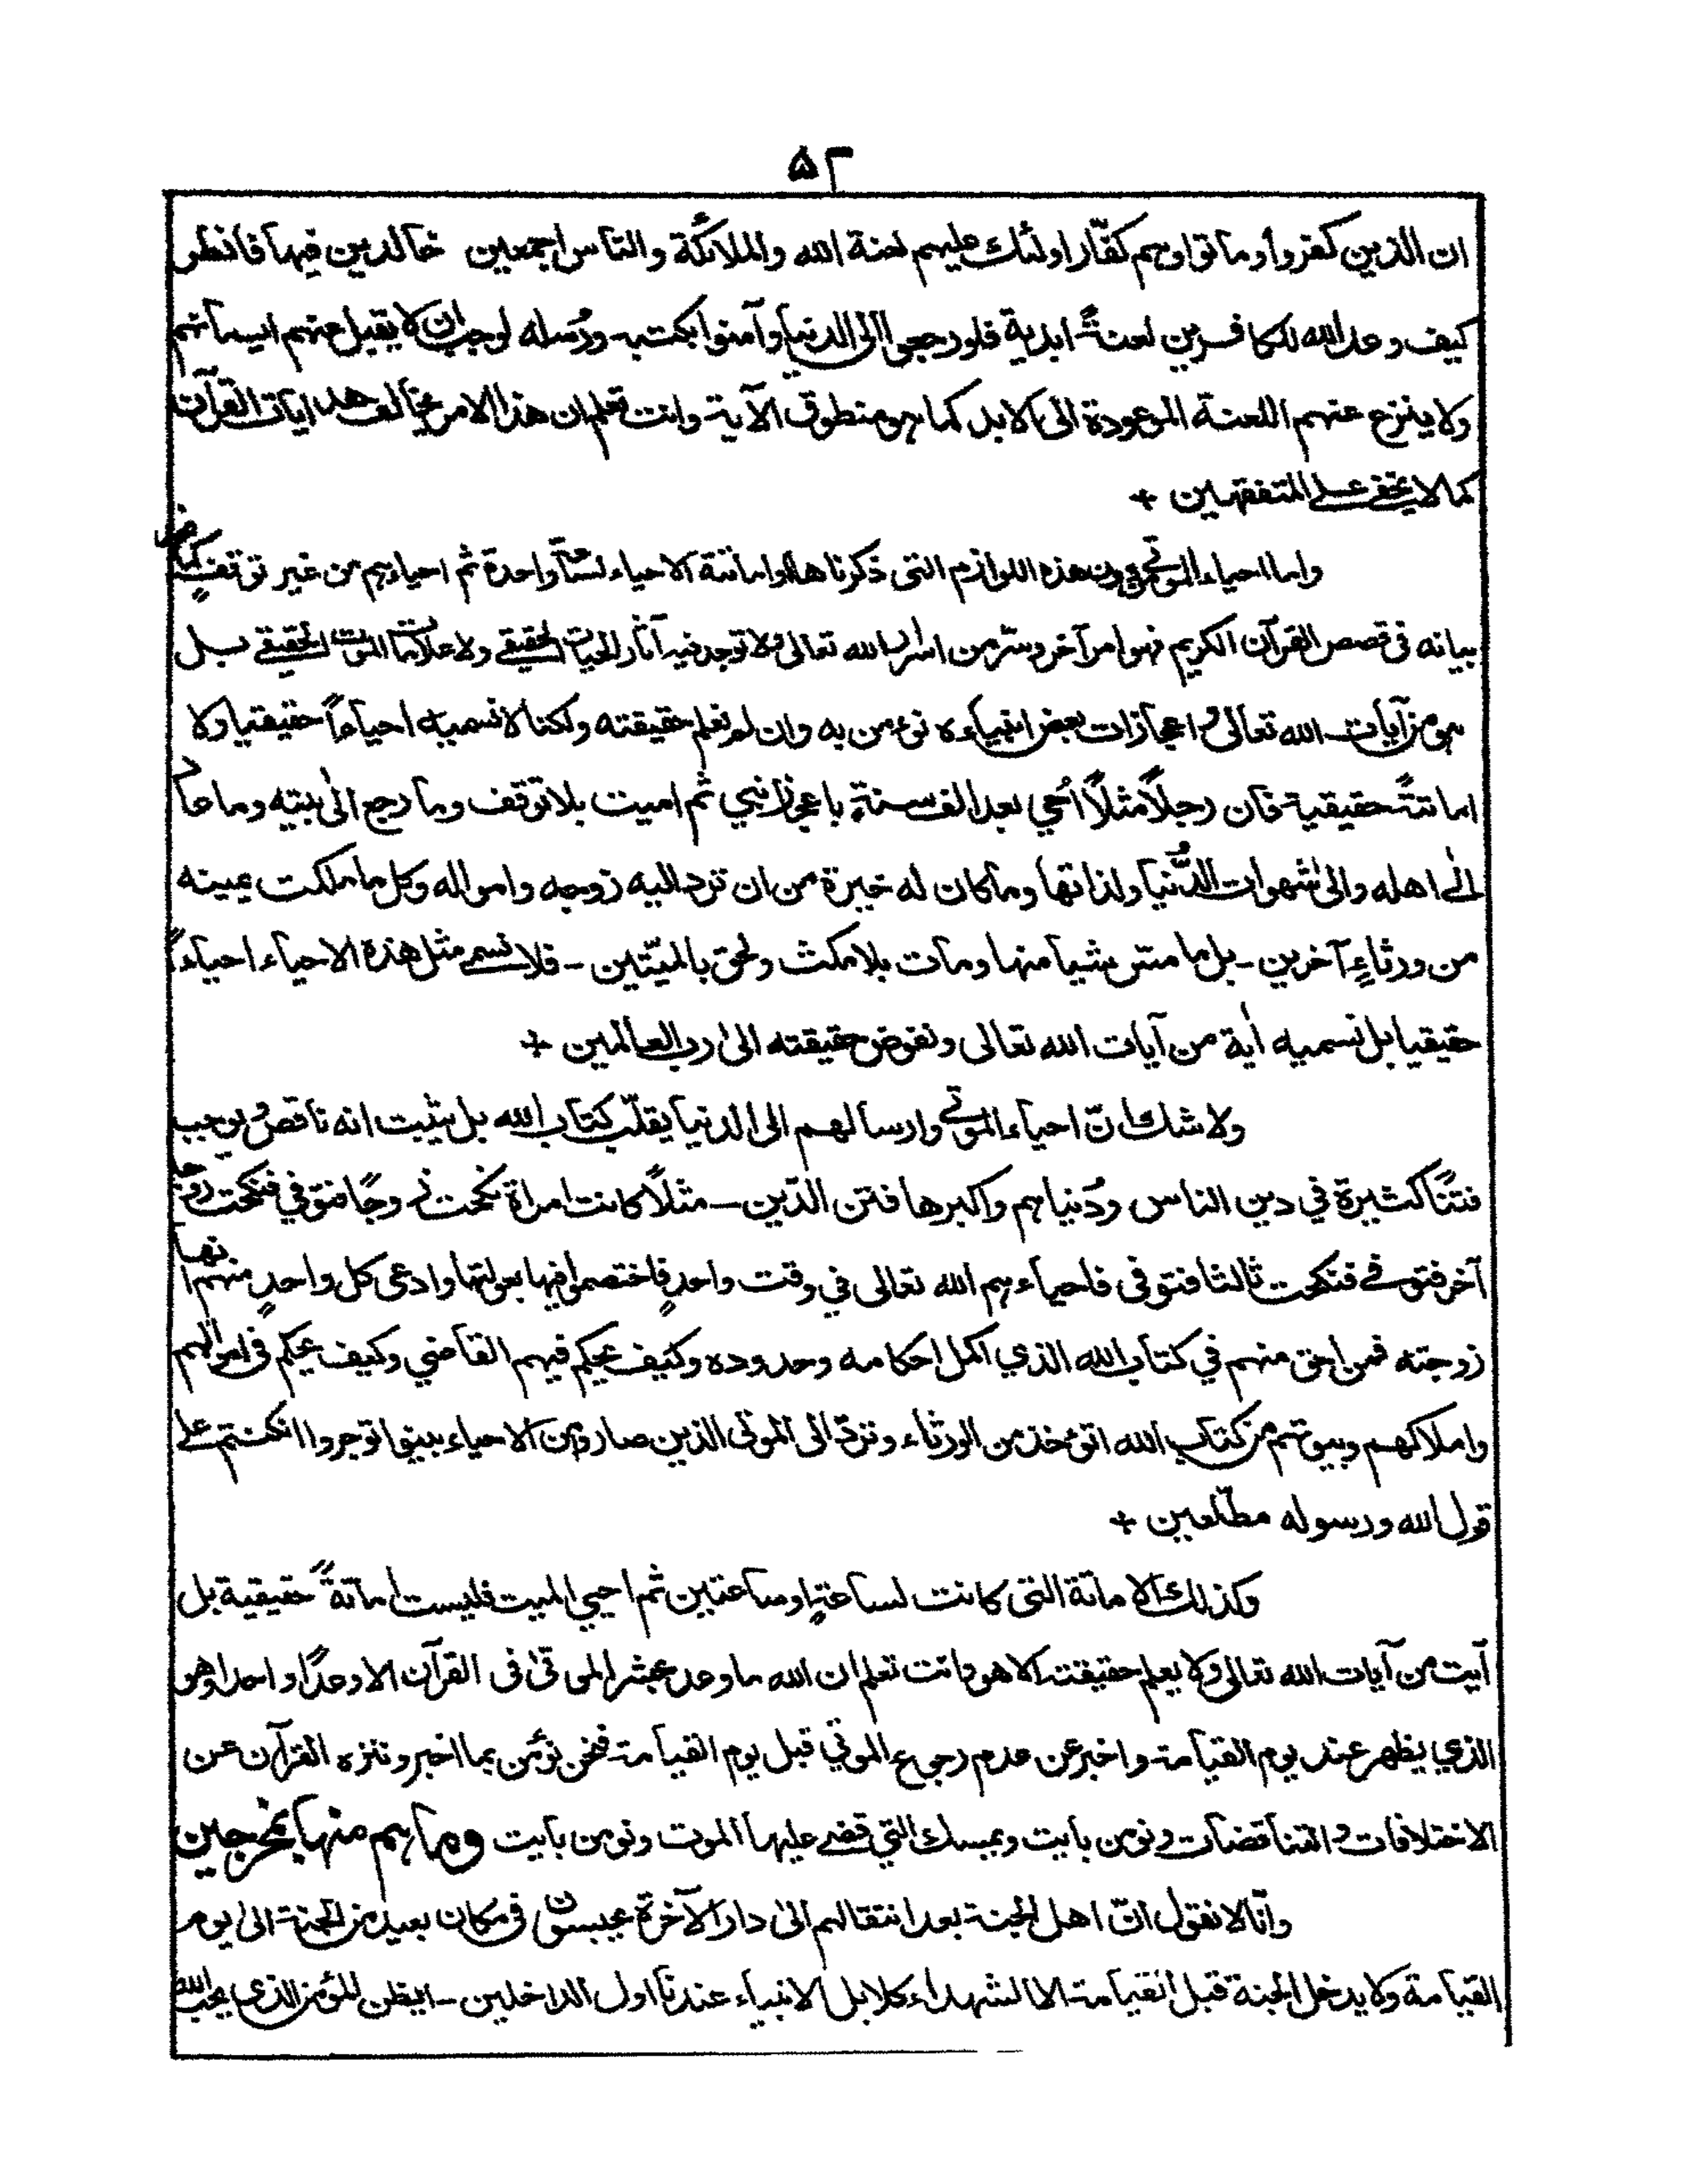 ۵۲
ان الذين كفروا وماتوا وهم كفّار اولئك عليهم لعنة الله والملائكة والناس اجمعين خالدين فيها فانظر
كيف وعد الله للكافرين لعنةً ابدية فلو رجعوا الى الدنيا وآمنوا بكتبه ورُسله لوجب ان لا يقبل عنهم ايمانهم
ولا ينزع عنهم اللعنة الموعودة الى الابد كما هو منطوق الآية وانت تعلم ان هذا الامر يخالف هدايات القرآن
كما لا يخفى على المتفقهين +
واما احياء الموتى من دون هذه اللوازم التى ذكرناها او اماتة الاحياء لساعةٍ واحدة ثم احياءهم من غير توقف كما
بيانه فى قصص القرآن الكريم فهو امر آخر وسرّ من اسرار الله تعالى ولا توجد فيه آثار الحيات الحقيقي ولا علامات الموت الحقيقي بل
هو من آيات الله تعالى واعجازات بعض انبياءه نؤمن به وان لم نعلم حقيقته ولكنا لا نسميه احياءاً حقيقيا ولا
اماتتةً حقيقية فان رجلاً مثلاً اُحيي بعد الف سنةٍ باعجاز نبي ثم اميت بلا توقف وما رجع الى بيته وما عاد
الى اهله والى شهوات الدُّنيا ولذاتها وما كان له خيرة من ان ترد اليه زوجه وامواله وكل ما ملكت يمينه
من ورثاءٍ آخرين - بل ما مسّ شيئا منها ومات بلا مكث ولحق بالميّتين - فلا نسمى مثل هذة الاحياء احياءً
حقيقيا بل نسميه اٰية من آيات الله تعالى ونفوض حقيقته الى رب العالمين +
ولا شك انّ احياء الموتى وارسالهم الى الدنيا يقلّب كتاب الله بل يثبت انه ناقص ويوجب
فتنًا كثيرة في دين الناس ودُنياهم واكبرها فتن الدّين - مثلًا كانت امراة نكحت زوجًا فتوفي فنكحت زوجا
آخر فتوفى فنكحت ثالثا فتوفى فاحياءهم الله تعالى في وقت واحدٍ فاختصموا فيها بعولتها وادعى كل واحدٍ منهم انها
زوجته فمن احق منهم في كتاب الله الذي اكمل احكامه وحدوده وكيف يحكم فيهم القاضي وكيف يحكم فى اموالهم
واملاكهم وبيوتهم من كتاب الله اتؤخذ من الورثاء وتردّ الى الموتى الذين صاروا من الاحياء بينوا توجروا ان كنتم على
قول الله ورسوله مطّلعين +
وكذلك الاماتة التى كانت لساعةٍ او ساعتين ثم احيي الميت فليست اماتةً حقيقية بل
آيت من آيات الله تعالى ولا يعلم حقيقته الا هو وانت تعلم ان الله ما وعد بحشر الموتى فى القرآن الا وعدًا واحدا وهو
الذي يظهر عند يوم القيامة واخبر عن عدم رجوع الموتي قبل يوم القيامة فنحن نؤمن بما اخبر وننزه القرآن عن
الاختلافات والتناقضات ونؤمن بآيت ويمسك التي قضى عليها الموت ونومن بآيت وما هم منها بمخرجين
وانّا لا نقول انّ اهل الجنة بعد انتقالهم الى دار الآخرة يحبسون فى مكان بعيد من الجنة الى يوم
القيامة ولا يدخل الجنة قبل القيامة الا الشهداء كلا بل الانبياء عندنا اول الداخلين - ايظن المؤمن الذي يحب الله